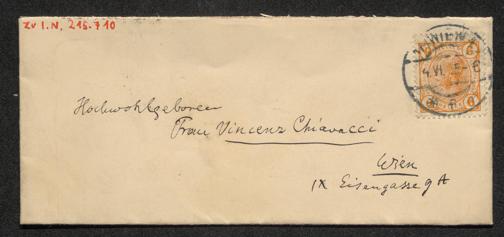 Zu I.N. 215.710
WIEN
4. VI.
6 6
Hochwohlgeboren
Frau Vincenz Chiavacci
Wien
IX Eisengasse 9 A